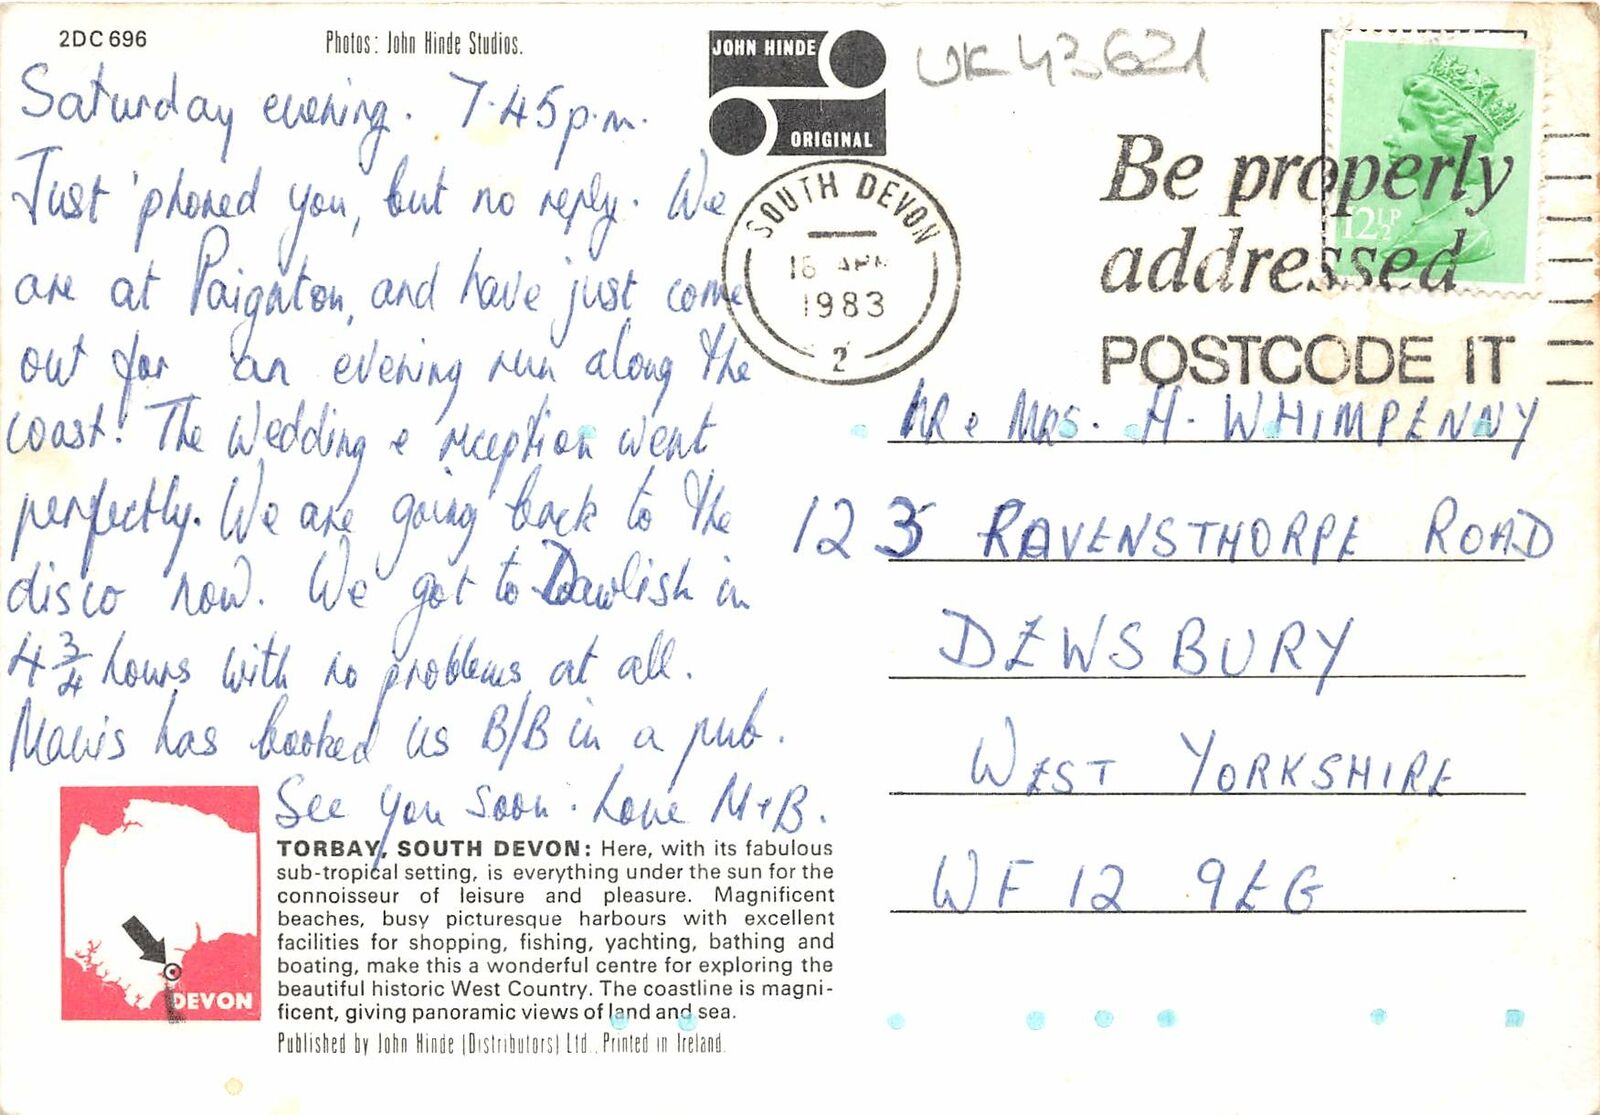 2DC696
Photos: John Hinde Studios.
JOHN HINDE
ORIGINAL
UK 43621
Saturday evening. 7.45p.m.
Just 'phoned you, but no reply. We
are at Paignton, and have just come
out for an evening run along the
coast! The Wedding & reception went
perfectly. We are going back to the
disco now. We got to Dawlish in
4 3/4 hours with no problems at all.
Mavis has booked us B/B in a pub.
See you soon. Love M+B.
SOUTH DEVON
16 APR
1983
2
Be properly
addressed
POSTCODE IT
12½P
MR & MRS. H. WHIMPENNY
123 RAVENSTHORPE ROAD
DEWSBURY
WEST YORKSHIRE
WF12 9EG
DEVON
TORBAY, SOUTH DEVON: Here, with its fabulous
sub-tropical setting, is everything under the sun for the
connoisseur of leisure and pleasure. Magnificent
beaches, busy picturesque harbours with excellent
facilities for shopping, fishing, yachting, bathing and
boating, make this a wonderful centre for exploring the
beautiful historic West Country. The coastline is magni-
ficent, giving panoramic views of land and sea.
Published by John Hinde (Distributors) Ltd., Printed in Ireland.